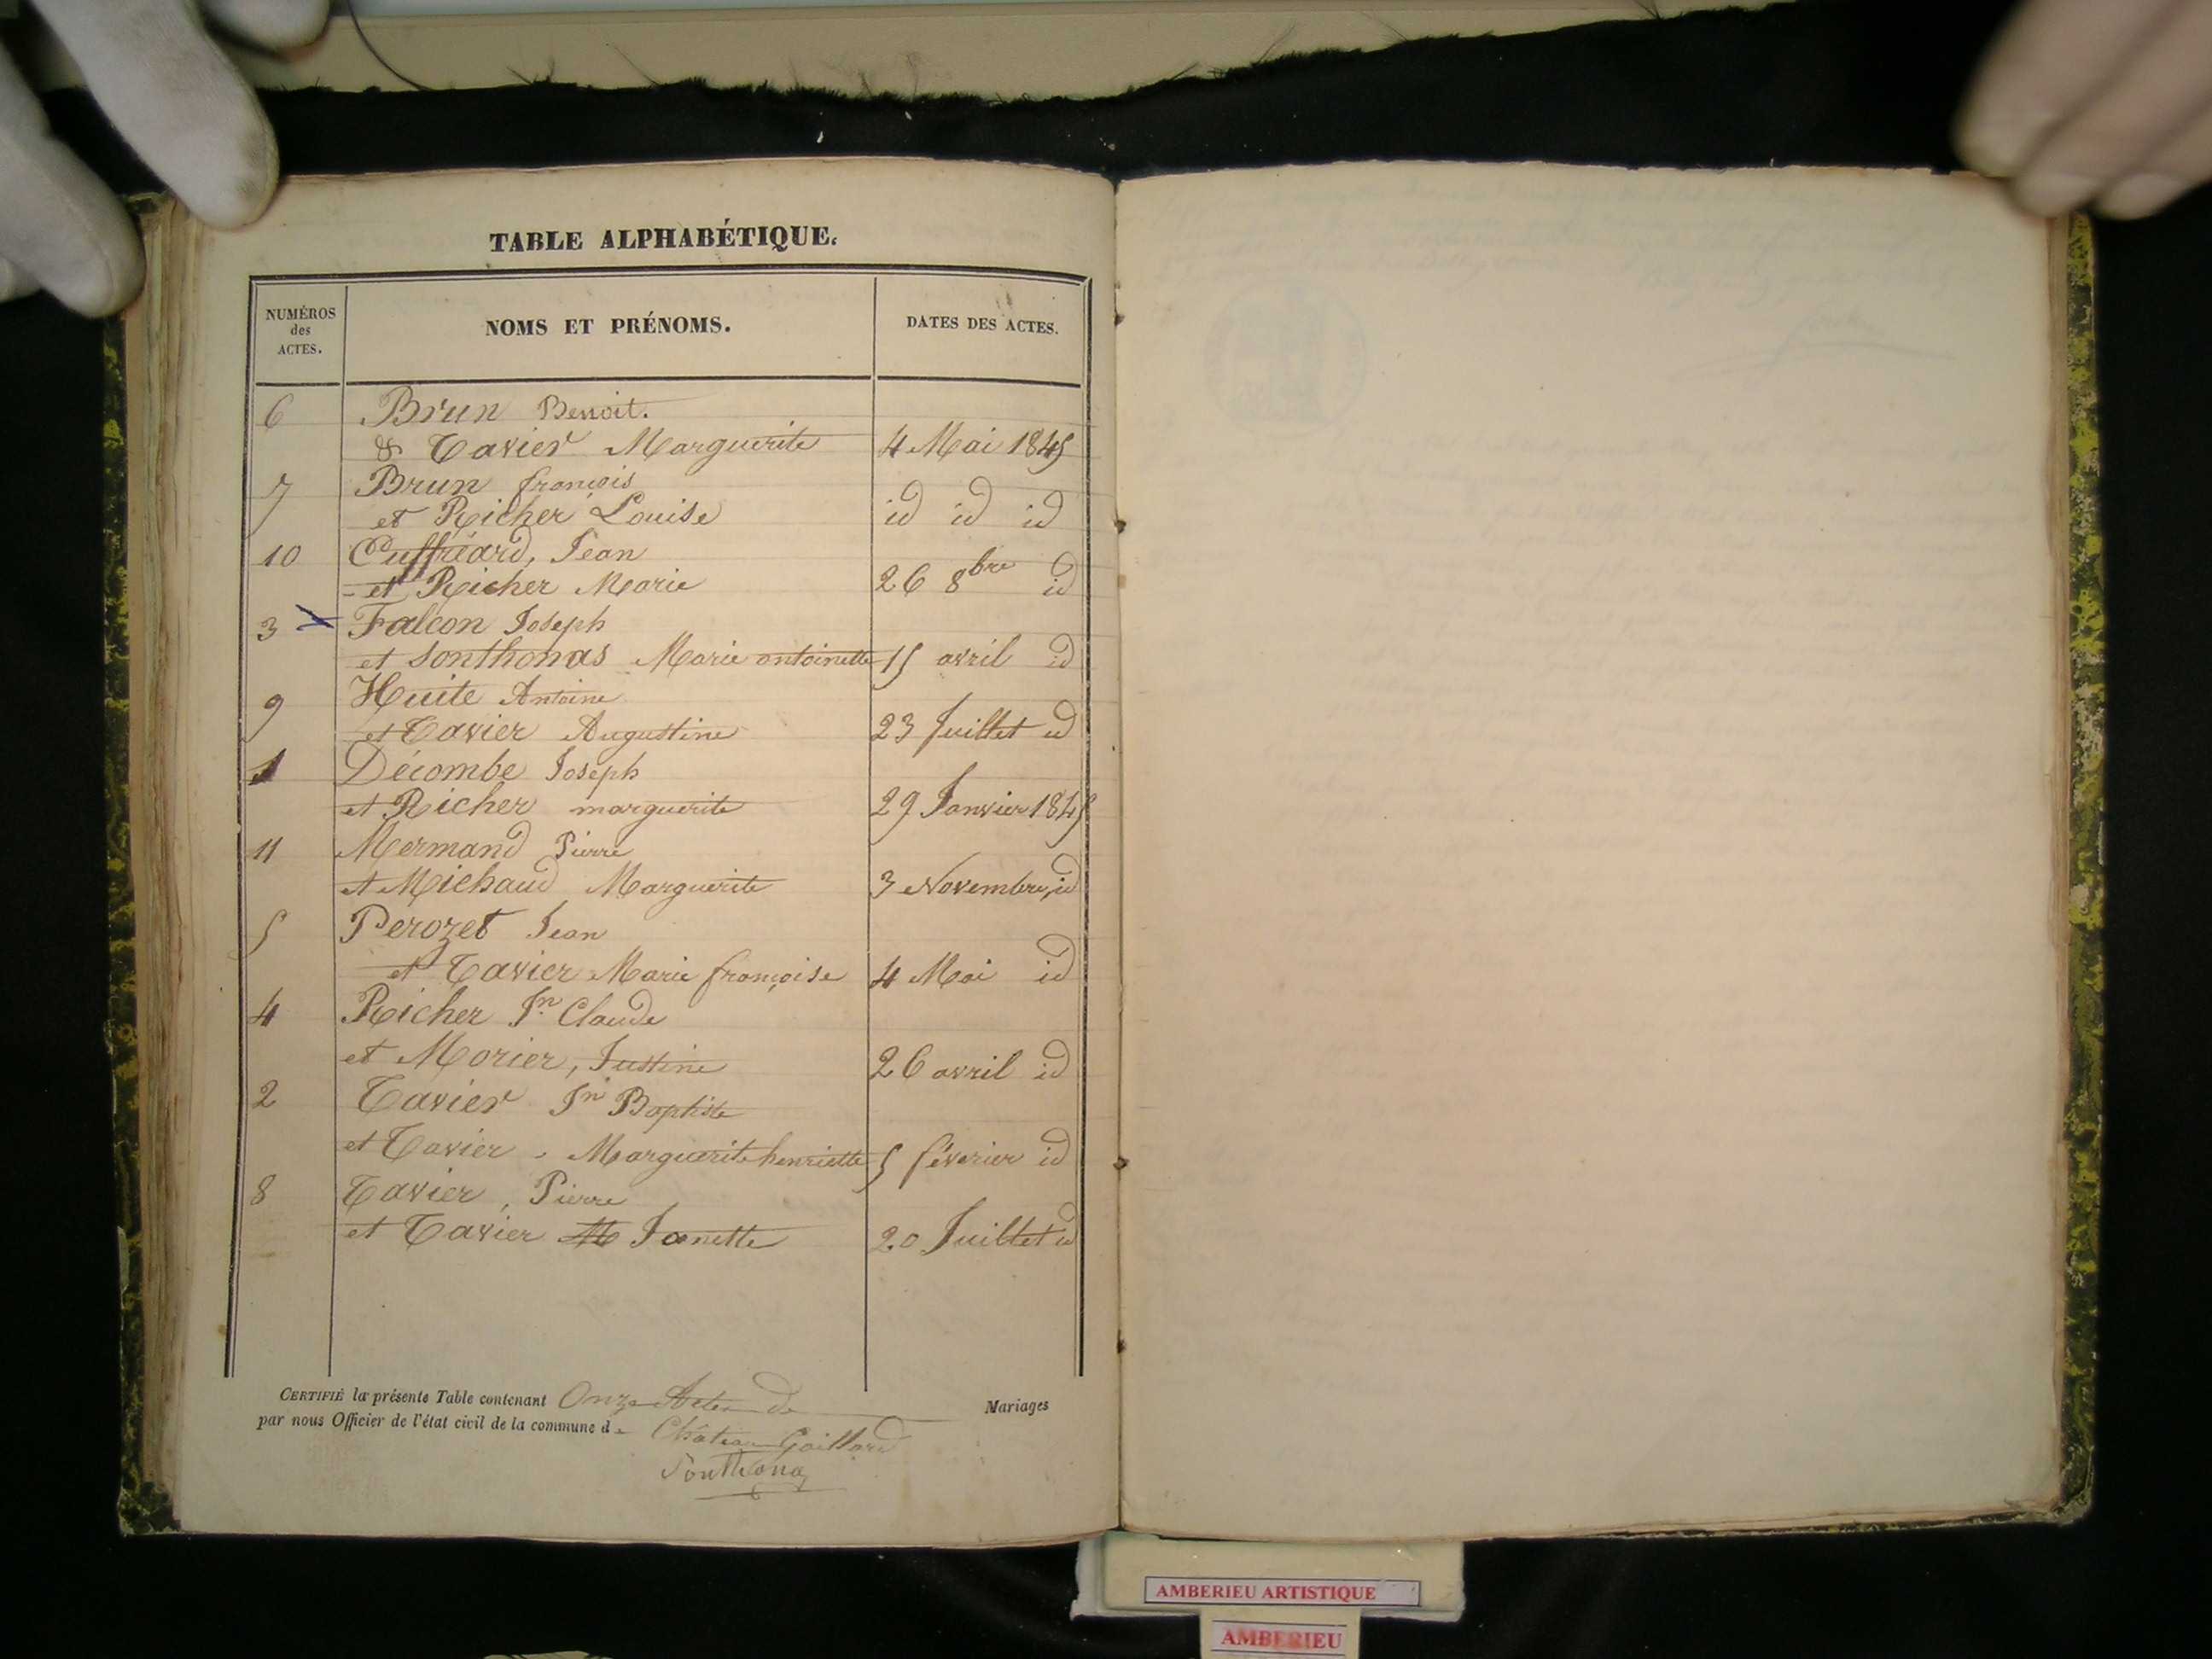 TABLE ALPHABÉTIQUE.
NUMÉROS des ACTES. NOMS ET PRÉNOMS. DATES DES ACTES.
6 Brun Benoit.
& Tavier Marguerite 4 Mai 1845
7 Brun françois
et Richer Louise id id id
10 Cuffréard, Jean
et Richer Marie 26 8bre id
3 Falcon Joseph
et Sonthonas Marie antoinette 15 avril id
9 Huite Antoine
et Tavier Augustine 23 Juillet id
1 Décombe Joseph
et Richer marguerite 29 Janvier 1845
11 Mermand Pierre
et Michaud Marguerite 3 Novembre, id
5 Perozet Jean
et Tavier Marie françoise 4 Mai id
4 Richer Jn. Claude
et Morier, Justine 26 avril id
2 Tavier Jn Baptiste
et Tavier, Marguerite henriette 5 féverier id
8 Tavier, Pierre
et Tavier Jeanette 20 Juillet id
CERTIFIÉ la présente Table contenant Onze Actes de Mariages
par nous Officier de l'état civil de la commune de Château Gaillard
Sonthonas
AMBERIEU ARTISTIQUE
AMBERIEU